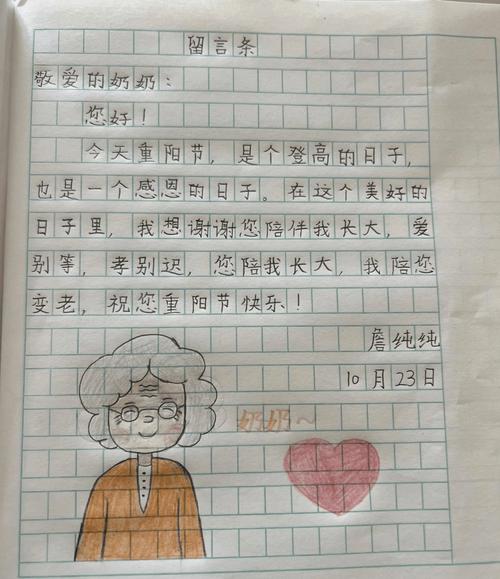 留言条
敬爱的奶奶：
您好！
今天重阳节，是个登高的日子，
也是一个感恩的日子。在这个美好的
日子里，我想谢谢您陪伴我长大，爱
别等，孝别迟，您陪我长大，我陪您
变老，祝您重阳节快乐！
詹纯纯
10月23日
奶奶～